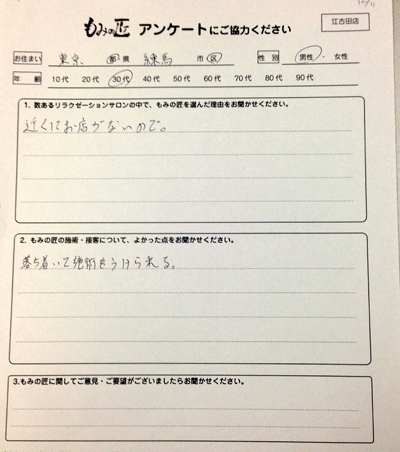 12/11
江古田店
もみの匠 アンケートにご協力ください
お住まい 東京 都 県 練馬 市 区 性別 男性 ・ 女性
年齢 10代 20代 30代 40代 50代 60代 70代 80代 90代
1. 数あるリラクゼーションサロンの中で、もみの匠を選んだ理由をお聞かせください。
近くにお店がないので。
2. もみの匠の施術・接客について、よかった点をお聞かせください。
落ち着いて施術をうけられる。
3.もみの匠に関してご意見・ご要望がございましたらお聞かせください。